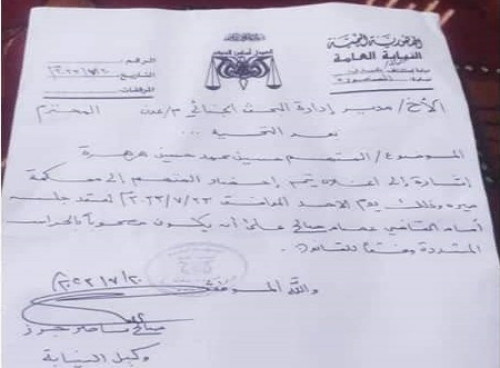 الجمهورية اليمنية
النيابة العامة
العدل أساس الحكم
الرقم:
التاريخ: ٢٠٢٣/٧/٢٠
المرفقات:
الأخ/ مدير إدارة البحث الجنائي م/عدن المحترم
بعد التحية ...
الموضوع/ المتهم حسين محمد حسين هرهرة
إشارة إلى أعلاه يتم إحضار المتهم إلى محكمة
صيره وذلك يوم الاحد الموافق ٢٠٢٣/٧/٢٣ لعقد جلسه
أمام القاضي صالح على أن يكون مصحوباً بالحراسه
المشددة وفقاً للقانون.
والله الموفق
٢٠٢٣/٧/٢٠
وكيل النيابة